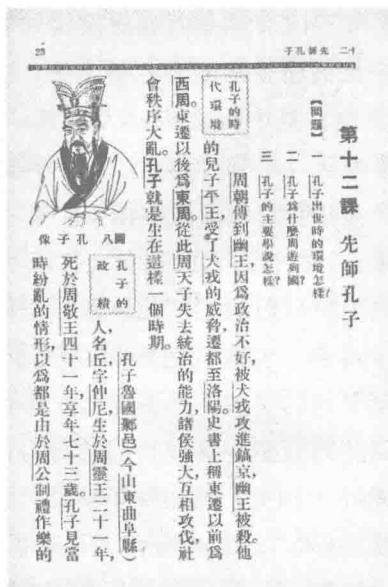 十二 先師孔子
23
第十二課 先師孔子
【問題】
一 孔子出世時的環境怎樣?
二 孔子爲什麼周遊列國?
三 孔子的主要學說怎樣?
孔子的時
代環境
周朝傳到幽王,因爲政治不好,被犬戎攻進鎬京,幽王被殺。他
的兒子平王,受了犬戎的威脅,遷都至洛陽。史書上稱東遷以前爲
西周。東遷以後爲東周。從此周天子失去統治的能力,諸侯強大,互相攻伐,社
會秩序大亂。孔子就是生在這樣一個時期。
圖八 孔子像
孔子的
政績
孔子魯國鄹邑(今山東曲阜縣)
人,名丘,字仲尼,生於周靈王二十一年,
死於周敬王四十一年,享年七十三歲。孔子見當
時紛亂的情形,以爲都是由於周公制禮作樂的